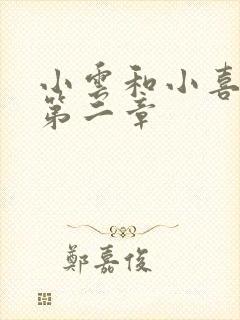 小雲和小喜
第二章
鄭嘉俊